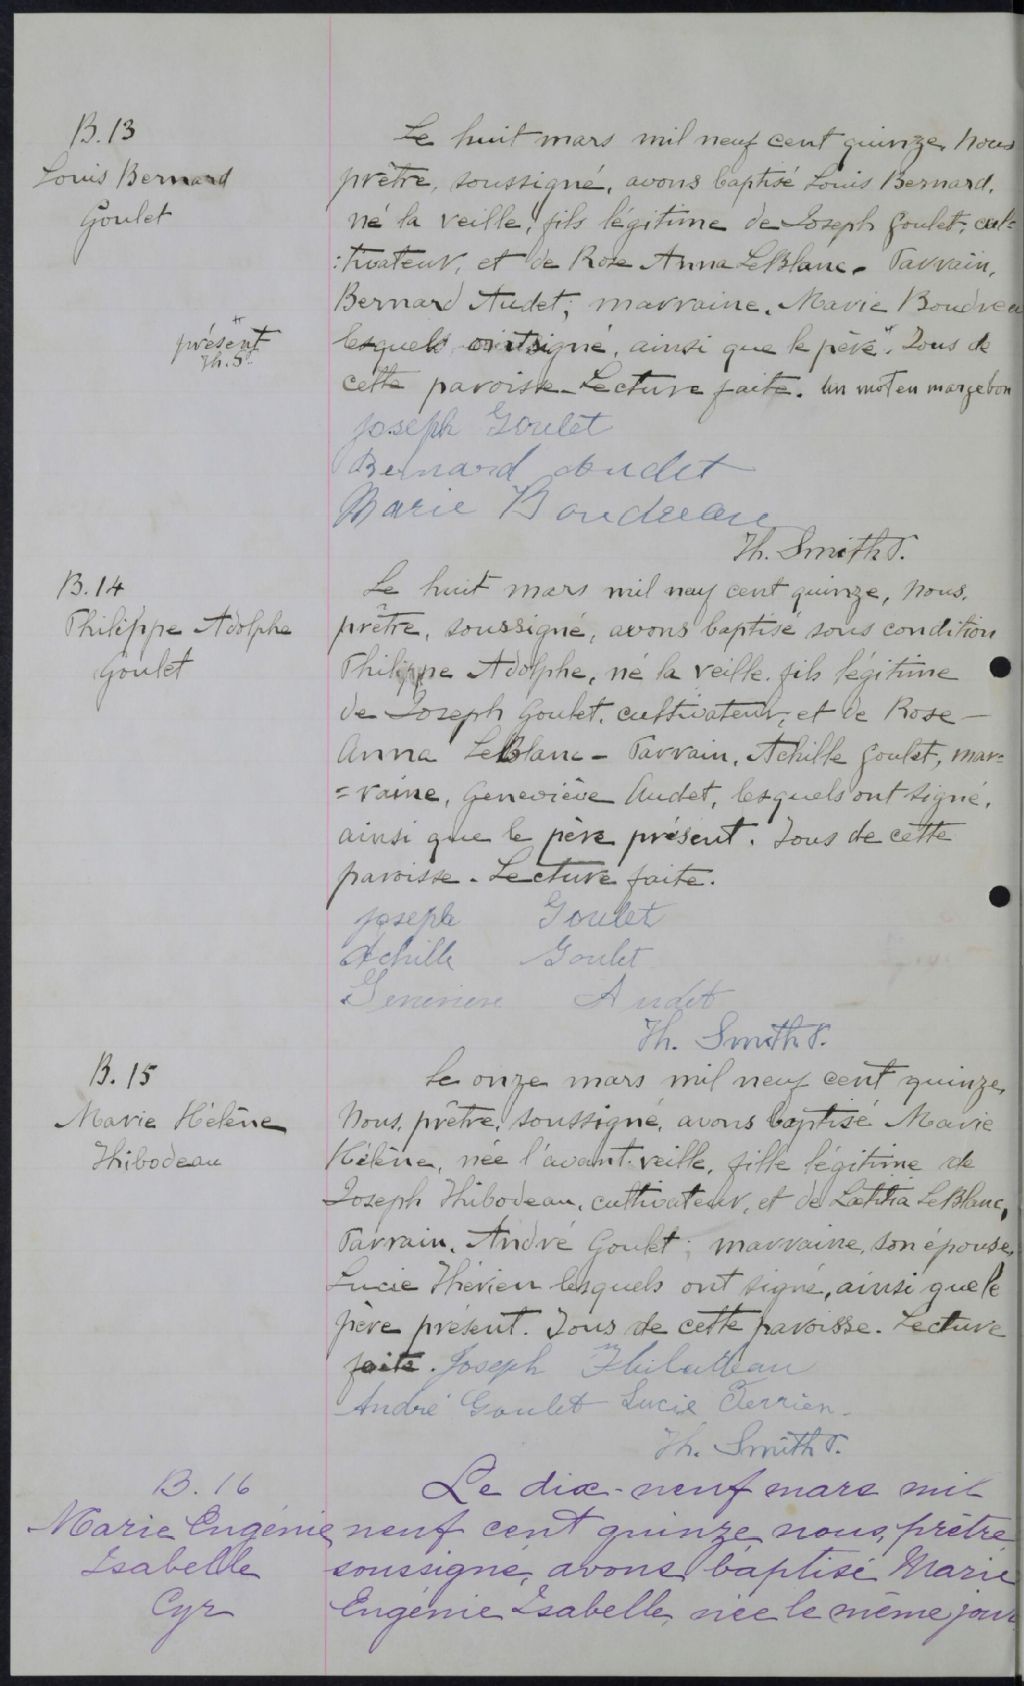 B. 13
Louis Bernard
Goulet
Le huit mars mil neuf cent quinze, Nous
prêtre, soussigné, avons baptisé Louis Bernard,
né la veille, fils légitime de Joseph Goulet, cul=
:tivateur, et de Rose Anna LeBlanc. Parrain,
Bernard Audet; marraine, Marie Boudreau
+
présent
Th. S.
lesquels ont signé, ainsi que le père +. Tous de
cette paroisse. Lecture faite. Un mot en marge bon
Joseph Goulet
Bernard Audet
Marie Boudreau
Th. Smith P.
B. 14
Philippe Adolphe
Goulet
Le huit mars mil neuf cent quinze, Nous,
prêtre, soussigné, avons baptisé sous condition
Philippe Adolphe, né la veille, fils légitime
de Joseph Goulet, cultivateur, et de Rose-
Anna LeBlanc - Parrain, Achille Goulet, mar=
=raine, Geneviève Audet, lesquels ont signé,
ainsi que le père présent. Tous de cette
paroisse. Lecture faite.
Joseph Goulet
Achille Goulet
Genevieve Audet
Th. Smith P.
B. 15
Marie Hélène
Thibodeau
Le onze mars mil neuf cent quinze,
Nous, prêtre, soussigné, avons baptisé Marie
Hélène, née l'avant-veille, fille légitime de
Joseph Thibodeau, cultivateur, et de Laetitia LeBlanc,
Parrain, André Goulet; marraine, son épouse,
Lucie Thérien lesquels ont signé, ainsi que le
père présent. Tous de cette paroisse. Lecture
faite. Joseph
André Goulet Lucie Terrien
Th. Smith P.
B. 16
Marie Eugénie
Isabelle
Cyr
Le dix-neuf mars mil
neuf cent quinze nous, prêtre
soussigné, avons baptisé Marie
Eugénie Isabelle née le même jour